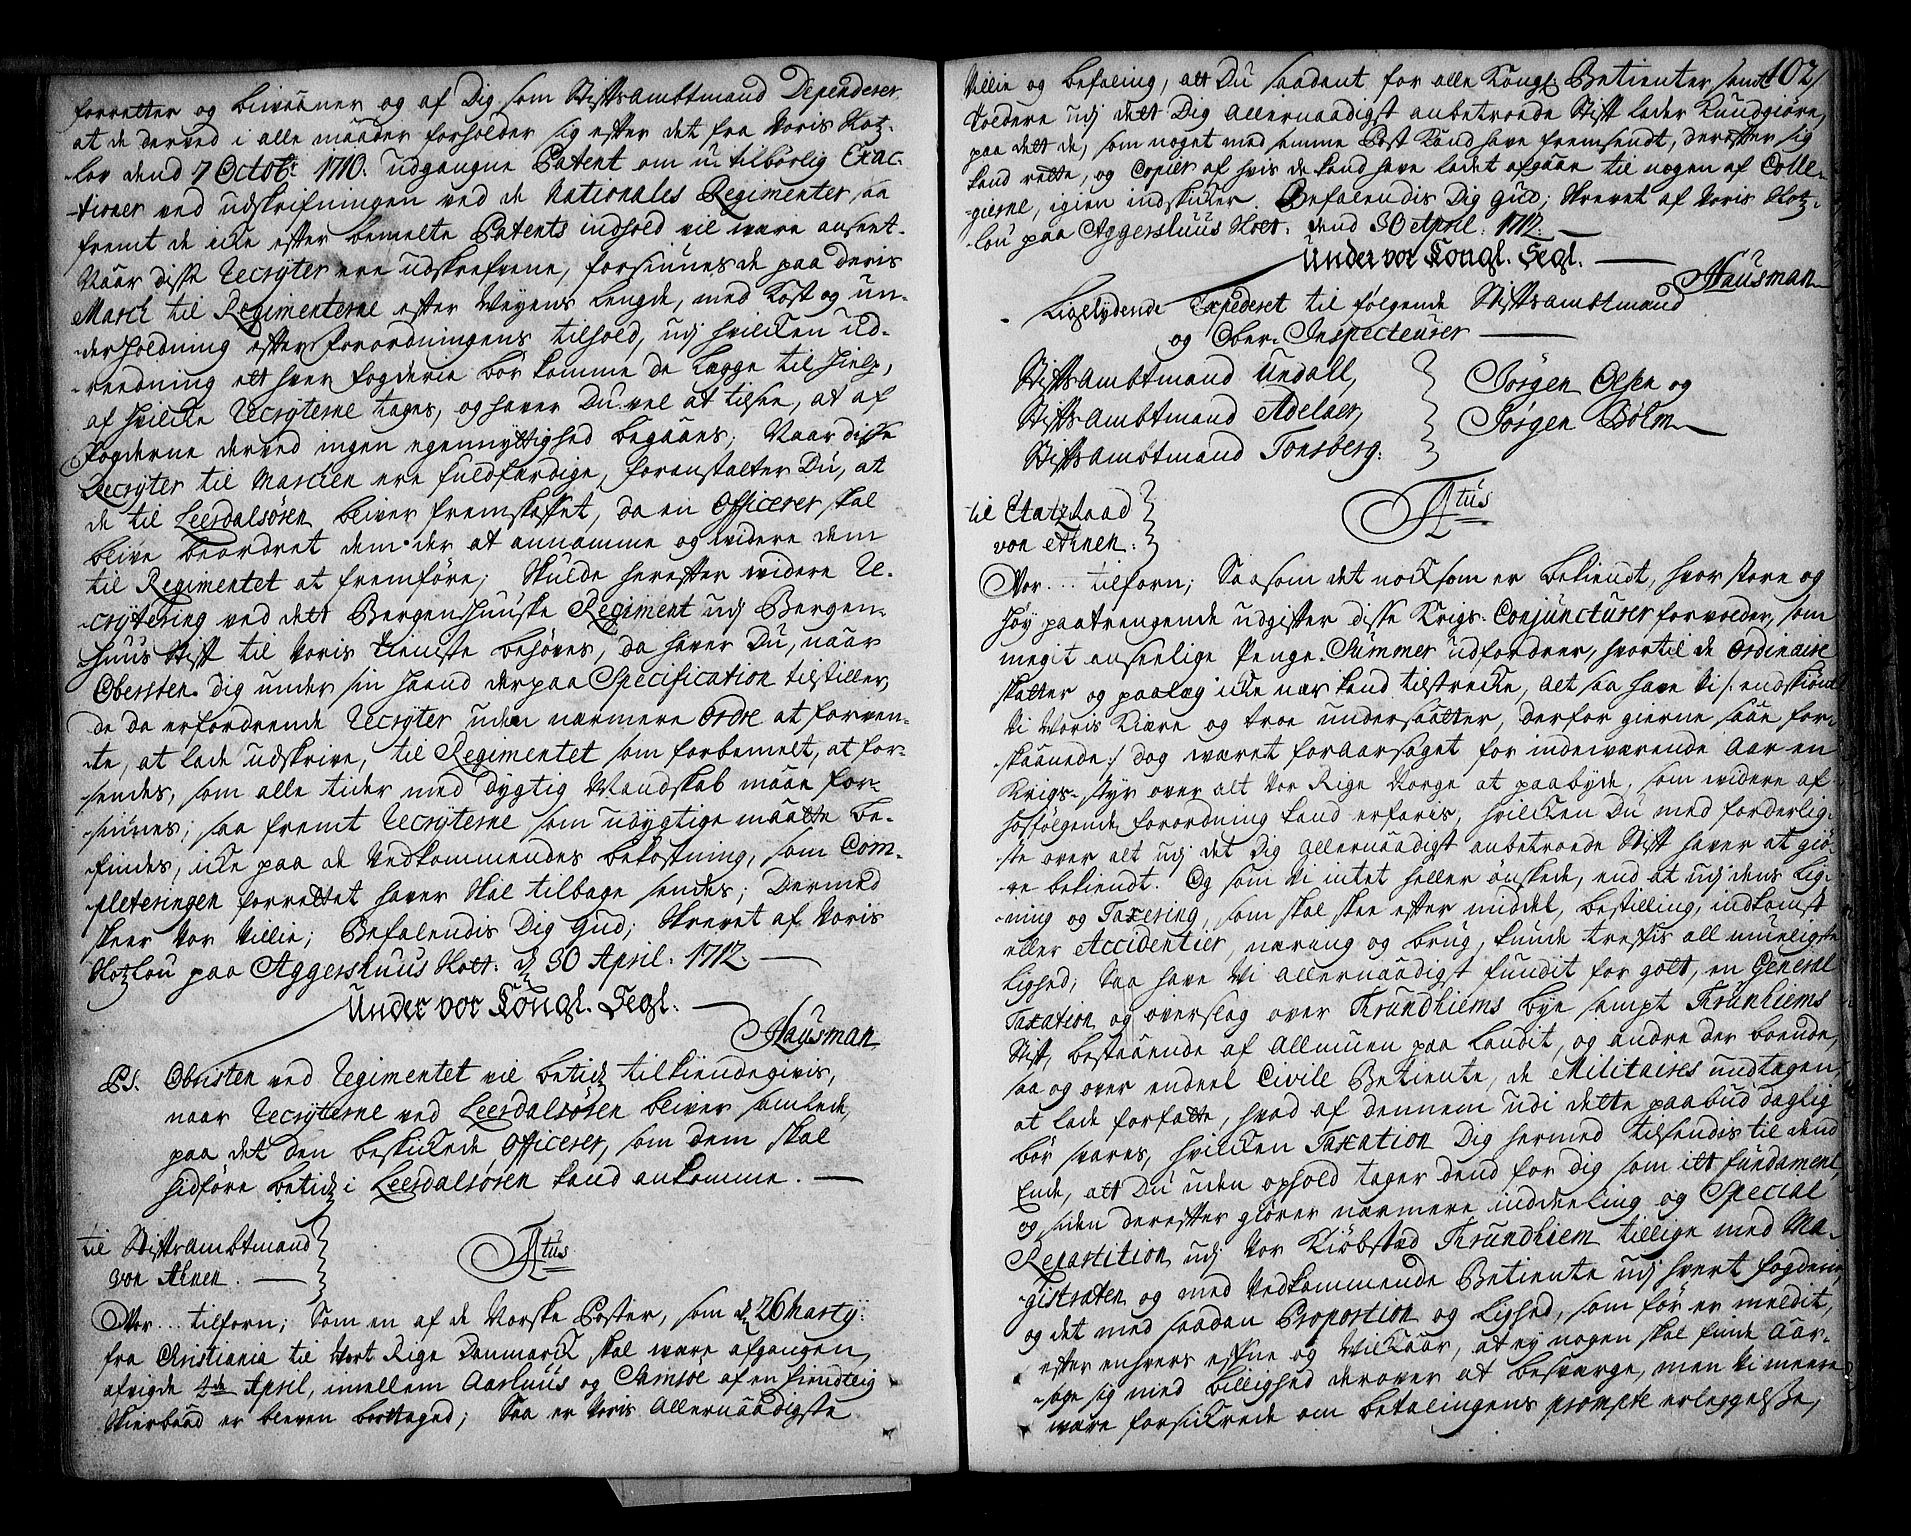 forretter og bivaaner og af Dig som Stiftsambtmand Dependerer
at de derved i alle maader forholder sig efter det fra Voris Hotz-
lov dend 7 Octobr: 1710. udgangne Patent om utilbörlig Exac-
-tioner ved udskrifningen ved de Nationales Regimenter, saa
fremt de icke efter bemelte Patents indhold vil være anseet.
Naar disse Recryter ere udskrefvene, forsiunes de paa deris
March til Regimenterne efter Veyens Lengde, med Kost og un-
-derholdning efter Forordningens tilhold, udj hvilcken ud-
-reedning ett hver fogderie bör komme de Lægge til hielp,
af hvilcke Recryterne tages, og haver Du vel at tilsee, at af
Fogderne derved ingen egennyttighed begaaes; Naar disse
Recryter til Marchen ere fuldfærdige, foranstalter Du, at
de til Leerdalsören bliver fremskaffet, da en Officerer skal
blive beordret dem der at annamme og widere dem
til Regimentet at fremföre; Skulde herefter widere Re-
-crytering ved dett BergenHuuske Regiment udj Bergen-
Huus Stift til Voris tieniste behöves, da haver Du, naar
Obersten Dig under sin haand derpaa Specification tilstiller,
de da erfordrende Recryter uden nærmere Ordre at forven-
-te, at lade udskrive, til Regimentet som forbemelt, at for-
-sendes, som alle tider med dygtig Mandskab maae for-
-siunes; saa fremt Recryterne som udygtige maatte be-
-findes, icke paa de Vedkommendes bekostning, som Com-
-pleteringen forrettet haver skal tilbage sendes; Dermed
skeer Vor Villie; Befalendis Dig Gud; Skrevet af Voris
Hotzlou paa Aggershuus Slott. d 30 April. 1712.
Under vor Kongl. Segl.
Hausman
PS. Obristen ved Regimentet vil betids tilkiendegivis,
naar Recryterne ved Leerdalsören bliver samlede,
paa det den beskickede Officerer, som dem skal
hidföre betids i Leerdalsören kand ankomme.
til Stiftsambtmand
von Ahnen.
F4tus
Vor... tilforn; Som en af de Norske Poster, som d 26 Marty:
fra Christiania til Vort Rige Danmarck skal være afgangen,
afvigde 4de April, imellem Aarhuus og Samsöe af en fiendtlig
Skierbaad er bleven borttaged; Saa er Voris Allernaadigste
102
Villie og befaling, att Du saadant for alle Kongl: Betienter samt
Toldere udj dett Dig Allernaadigst anbetroede Stift lader Kundgiöre,
paa dett de, som noget med samme Post Kand have fremsendt, derefter sig
kand rette, og Copier af hvis de kand have ladet afgaae til nogen af Colle-
-gierne, igien indskicker. Befalendis Dig Gud; Skrevet af Voris Hotz-
-lou paa Aggershuus Slott. dend 30 April. 1712.
Under vor Kongl. Segl.
Hausman
Ligelydende Expederet til fölgende Stiftsambtmænd
og Ober. Inspecteurer
Stiftsambtmand Undall,
Stiftsambtmand Adelaer,
Stiftsambtmand Tonsberg.
Jörgen Olsen og
Jörgen Bölm
til Etatzraad
von Ahnen.
F4tus
Vor... tilforn; Saasom det nocksom er bekiendt, hvor store og
höy paatrengende udgifter disse Krigs-Conjuncturer forvolder, som
megit anseelige Penge-Summer udfordrer, hvortil de Ordinaire
skatter og paalæg icke nær kand tilstrecke, Alt saa have Vi /: endskiönt
Vi Voris Kiære og troe undersaatter, derfor gierne saae for-
-skaanede :/ dog wæret foraarsaget for indewærende Aar en
Krigs-styr over alt Vor Rige Norge at paabyde, som widere af
hosfölgende forordning kand erfaris, hvilcken Du med forderlig-
-ste over alt udj det Dig Allernaadigst anbetroede Stift haver at giö-
-re bekiendt. Og som Vi intet heller önskede, end at udj dens Lig-
-ning og Taxering, som skal skee efter middel, bestilling, indkomst
eller Accidentier, næring og brug, kunde treffis all mueligste
Lighed; Saa have Vi Allernaadigst fundit for gott, en General
Taxation og overslag over Trundhiems bye sampt Trundhiems
Stift, bestaaende af Allmuen paa Landit, og andre der boende,
saa og over endeel Civile Betiente, de Militaires undtagen,
at lade forfatte, hvad af dennem udi dette paabud daglig
bör svares, hvilcken Taxation Dig hermed tilsendis til dend
Ende, att Du uden ophold tager dend for dig som ett fundament,
og siden derefter giörer nærmere inddeeling og Special
Repartition udj Vor Kiöbsted Trundhiem tillige med Ma-
-gistraten og med Vedkommende Betiente udj hvert fogderie,
og det med saadan Proportion og Lighed, som för er meldit,
efter enhvers effne og Vilckaar, at ey nogen skal finde Aar-
-sage sig med billighed derover at besværge, men Vi meere
være forsickrede om betalingens prompte erleggelse,